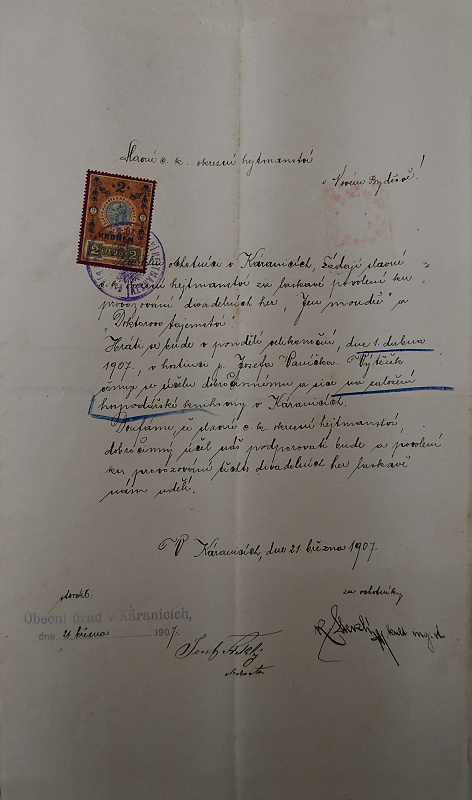 Slavné c. k. okresní hejtmanství
v Novém Bydžově!
2
KRONEN
ochotníci v Káranicích, žádají slavné
c. k. okresní hejtmanství za laskavé povolení ku
provozování divadelních her „Jen moudře" a
„Doktorovo tajemství".
Hráti se bude v pondělí velikonoční, dne 1. dubna
1907, v hostinci p. Josefa Vaníčka. Výtěžek
věnuje se účelu dobročinnému a sice na založení
hospodářské knihovny v Káranicích.
Doufáme, že slavné c. k. okresní hejtmanství
dobročinný účel náš podporovati bude a povolení
ku provozování těchto divadelních her laskavě
nám udělí.
V Káranicích, dne 21 března 1907.
za ochotníky
Obecní úřad v Káranicích,
dne 21 března 1907.
Josef
starosta